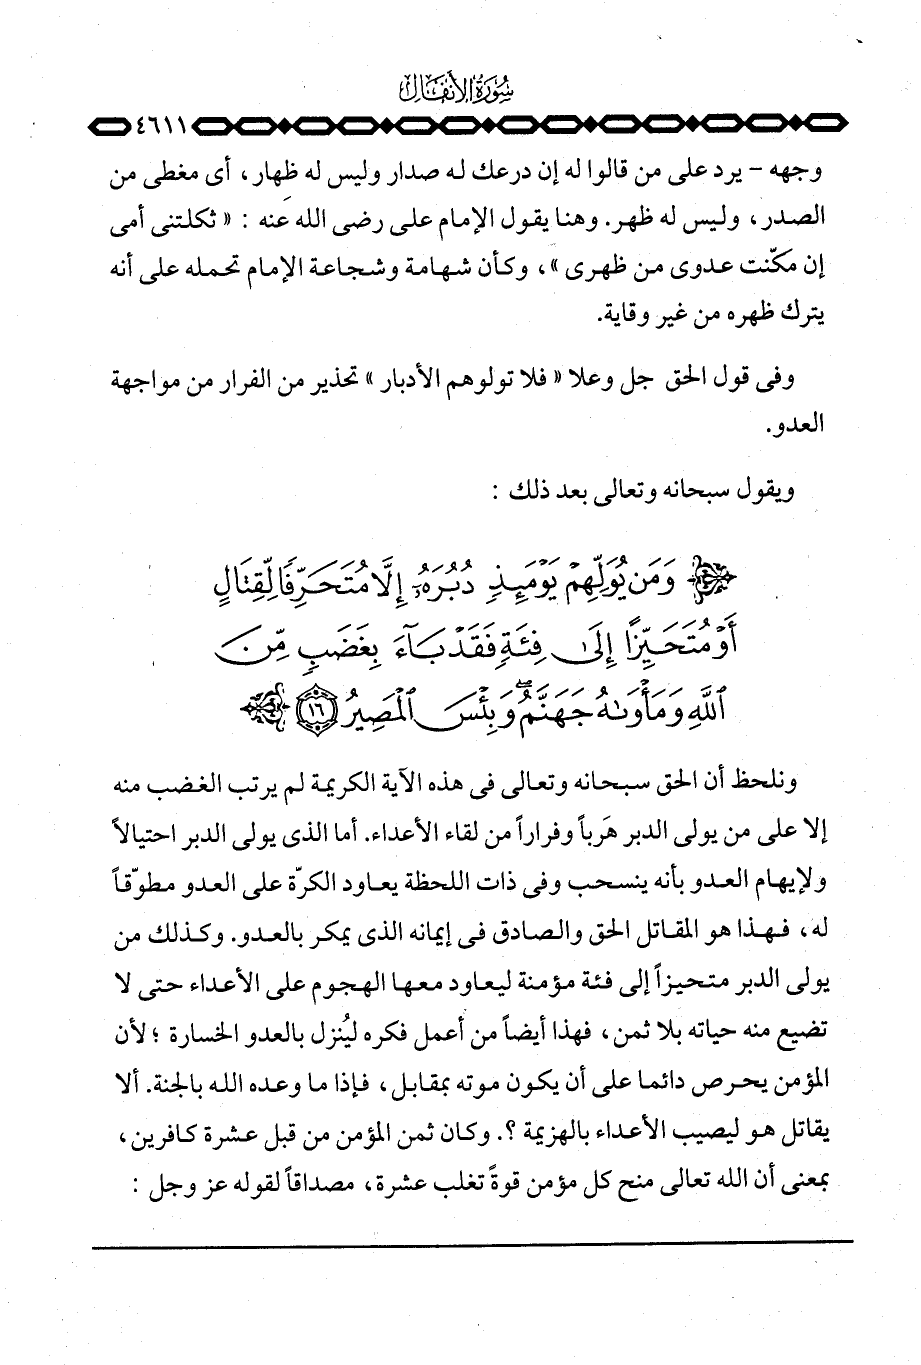 سُورَةُ الأَنفَالِ
٤٦١١
وجهه – يرد على من قالوا له إن درعك له صدار وليس له ظهار، أى مغطى من
الصدر، وليس له ظهر. وهنا يقول الإمام على رضى الله عنه : « ثكلتنى أمى
إن مكّنت عدوى من ظهرى »، وكأن شهامة وشجاعة الإمام تحمله على أنه
يترك ظهره من غير وقاية.
وفى قول الحق جل وعلا « فلا تولوهم الأدبار » تحذير من الفرار من مواجهة
العدو.
ويقول سبحانه وتعالى بعد ذلك :
وَمَن يُوَلِّهِمْ يَوْمَئِذٍ دُبُرَهُۥٓ إِلَّا مُتَحَرِّفًا لِّقِتَالٍ
أَوْ مُتَحَيِّزًا إِلَىٰ فِئَةٍ فَقَدْ بَآءَ بِغَضَبٍ مِّنَ
ٱللَّهِ وَمَأْوَىٰهُ جَهَنَّمُ ۖ وَبِئْسَ ٱلْمَصِيرُ ١٦
ونلحظ أن الحق سبحانه وتعالى فى هذه الآية الكريمة لم يرتب الغضب منه
إلا على من يولى الدبر هَرباً وفراراً من لقاء الأعداء. أما الذى يولى الدبر احتيالاً
ولإيهام العدو بأنه ينسحب وفى ذات اللحظة يعاود الكرّة على العدو مطوّقاً
له، فهذا هو المقاتل الحق والصادق فى إيمانه الذى يمكر بالعدو. وكذلك من
يولى الدبر متحيزاً إلى فئة مؤمنة ليعاود معها الهجوم على الأعداء حتى لا
تضيع منه حياته بلا ثمن، فهذا أيضاً من أعمل فكره ليُنزل بالعدو الخسارة ؛ لأن
المؤمن يحرص دائما على أن يكون موته بمقابل، فإذا ما وعده الله بالجنة. ألا
يقاتل هو ليصيب الأعداء بالهزيمة ؟. وكان ثمن المؤمن من قبل عشرة كافرين،
بمعنى أن الله تعالى منح كل مؤمن قوةً تغلب عشرة، مصداقاً لقوله عز وجل :